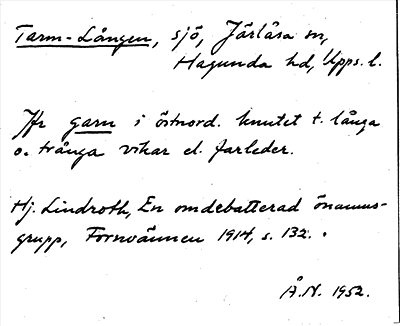 Tarm-Lången, sjö, Järlåsa sn,
Hagunda hd, Upps. l.
Jfr garn i östnord. knutet t. långa
o. trånga vikar el. farleder.
Hj. Lindroth, En omdebatterad önamns-
grupp, Fornvännen 1914, s. 132.
Å.N. 1952.